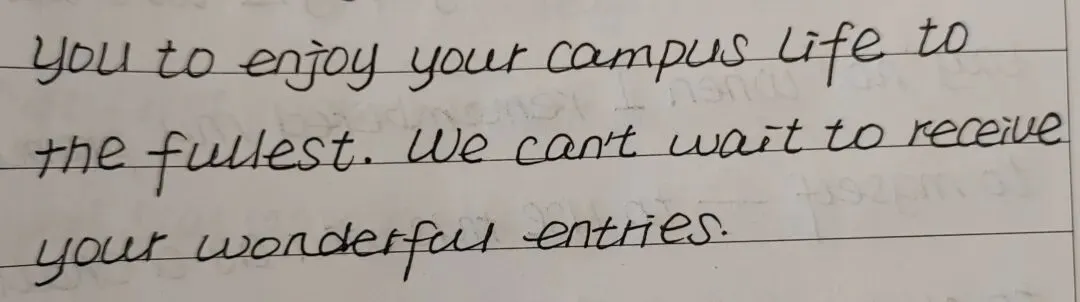 you to enjoy your campus life to
the fullest. We can't wait to receive
your wonderful entries.